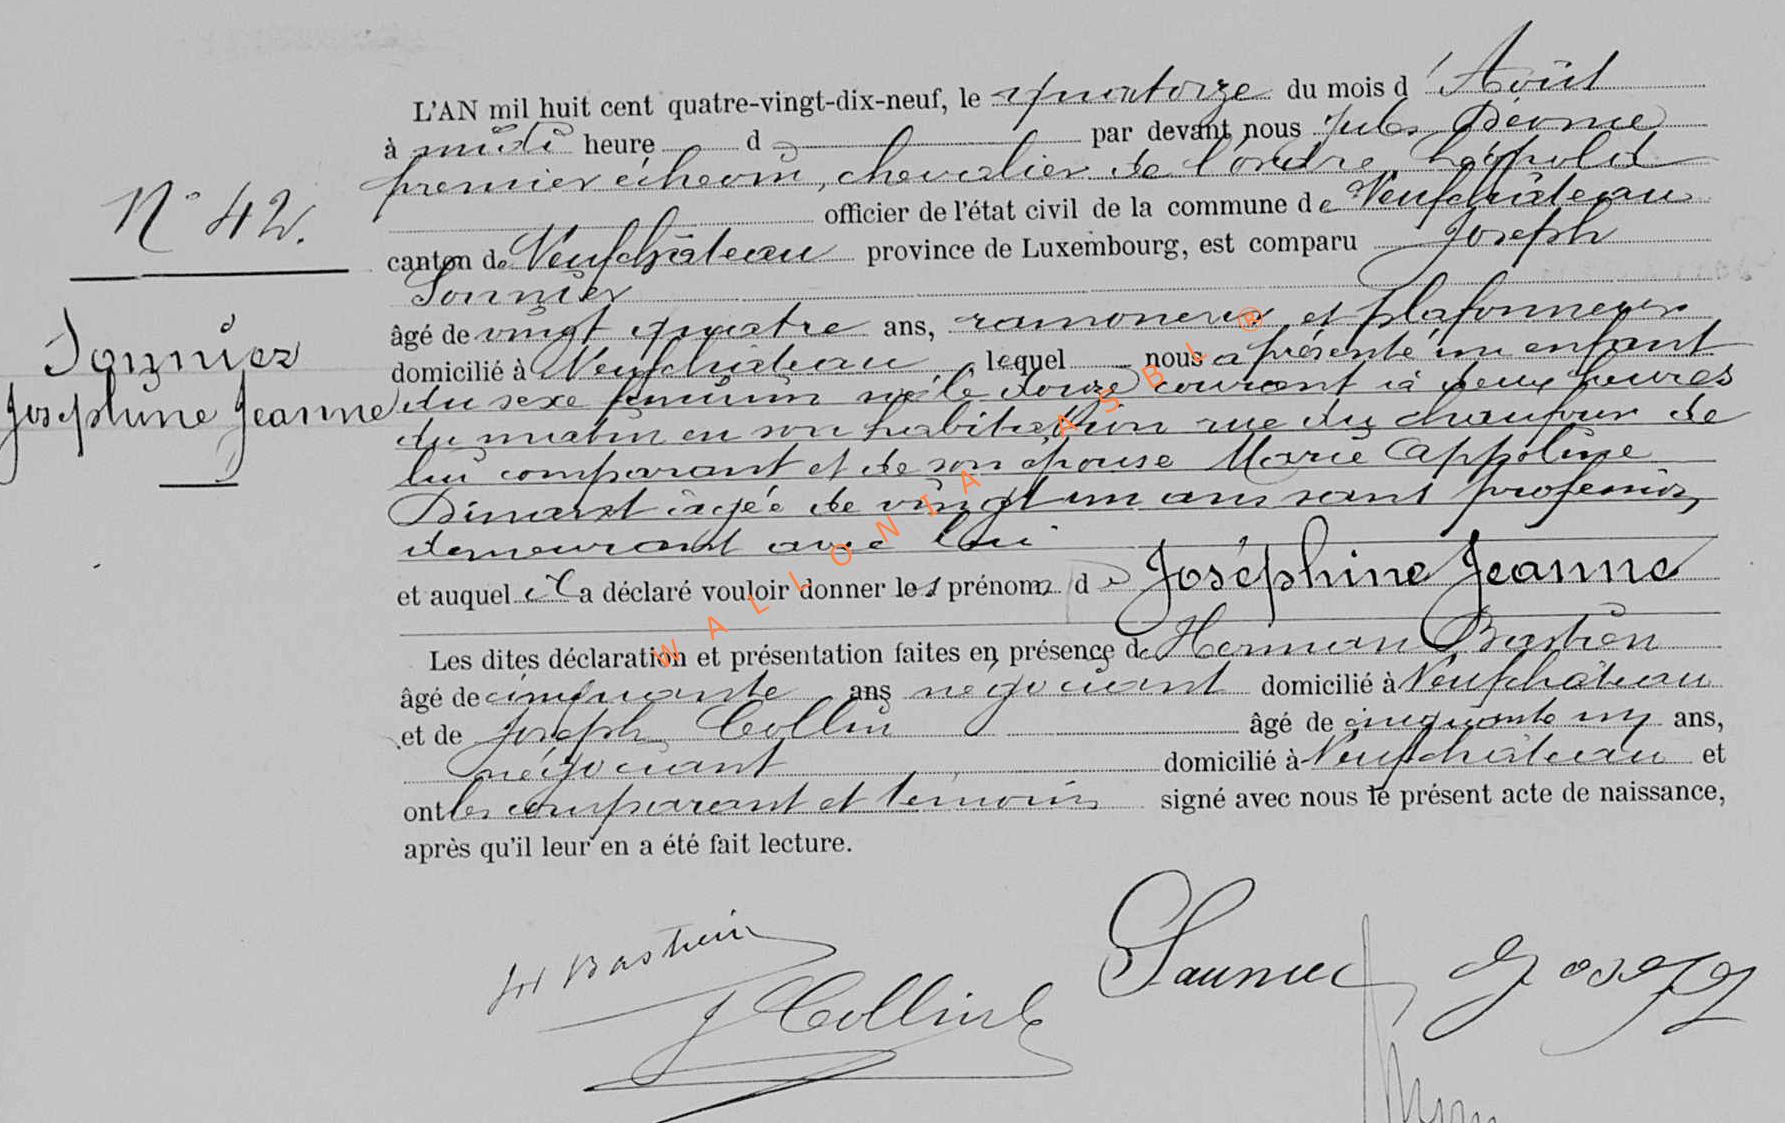 L'AN mil huit cent quatre-vingt-dix-neuf, le quatorze du mois d'Août
à midi heure d par devant nous Jules
premier échevin, chevalier de l'ordre Léopold
officier de l'état civil de la commune de Neufchâteau
canton de Neufchâteau province de Luxembourg, est comparu Joseph
Sonnier
âgé de vingt quatre ans, ramoneur et plafonneur
domicilié à Neufchâteau lequel nous a présenté un enfant
du sexe féminin né le douze courant à deux heures
du matin en son habitation rue du chaufour de
lui comparant et de son épouse Marie Appoline
Dinant âgée de vingt un ans sans profession,
demeurant avec lui
et auquel il a déclaré vouloir donner les prénoms de Joséphine Jeanne
Les dites déclaration et présentation faites en présence de Herman Bastien
âgé de cinquante ans négociant domicilié à Neufchâteau
et de Joseph Collin âgé de cinquante un ans,
négociant domicilié à Neufchâteau et
ont les comparant et témoins signé avec nous le présent acte de naissance,
après qu'il leur en a été fait lecture.
N° 42.
Sonnier
Joséphine Jeanne
H Bastien
J Collin
Saunier Joseph
WALLONIA ASBL ®